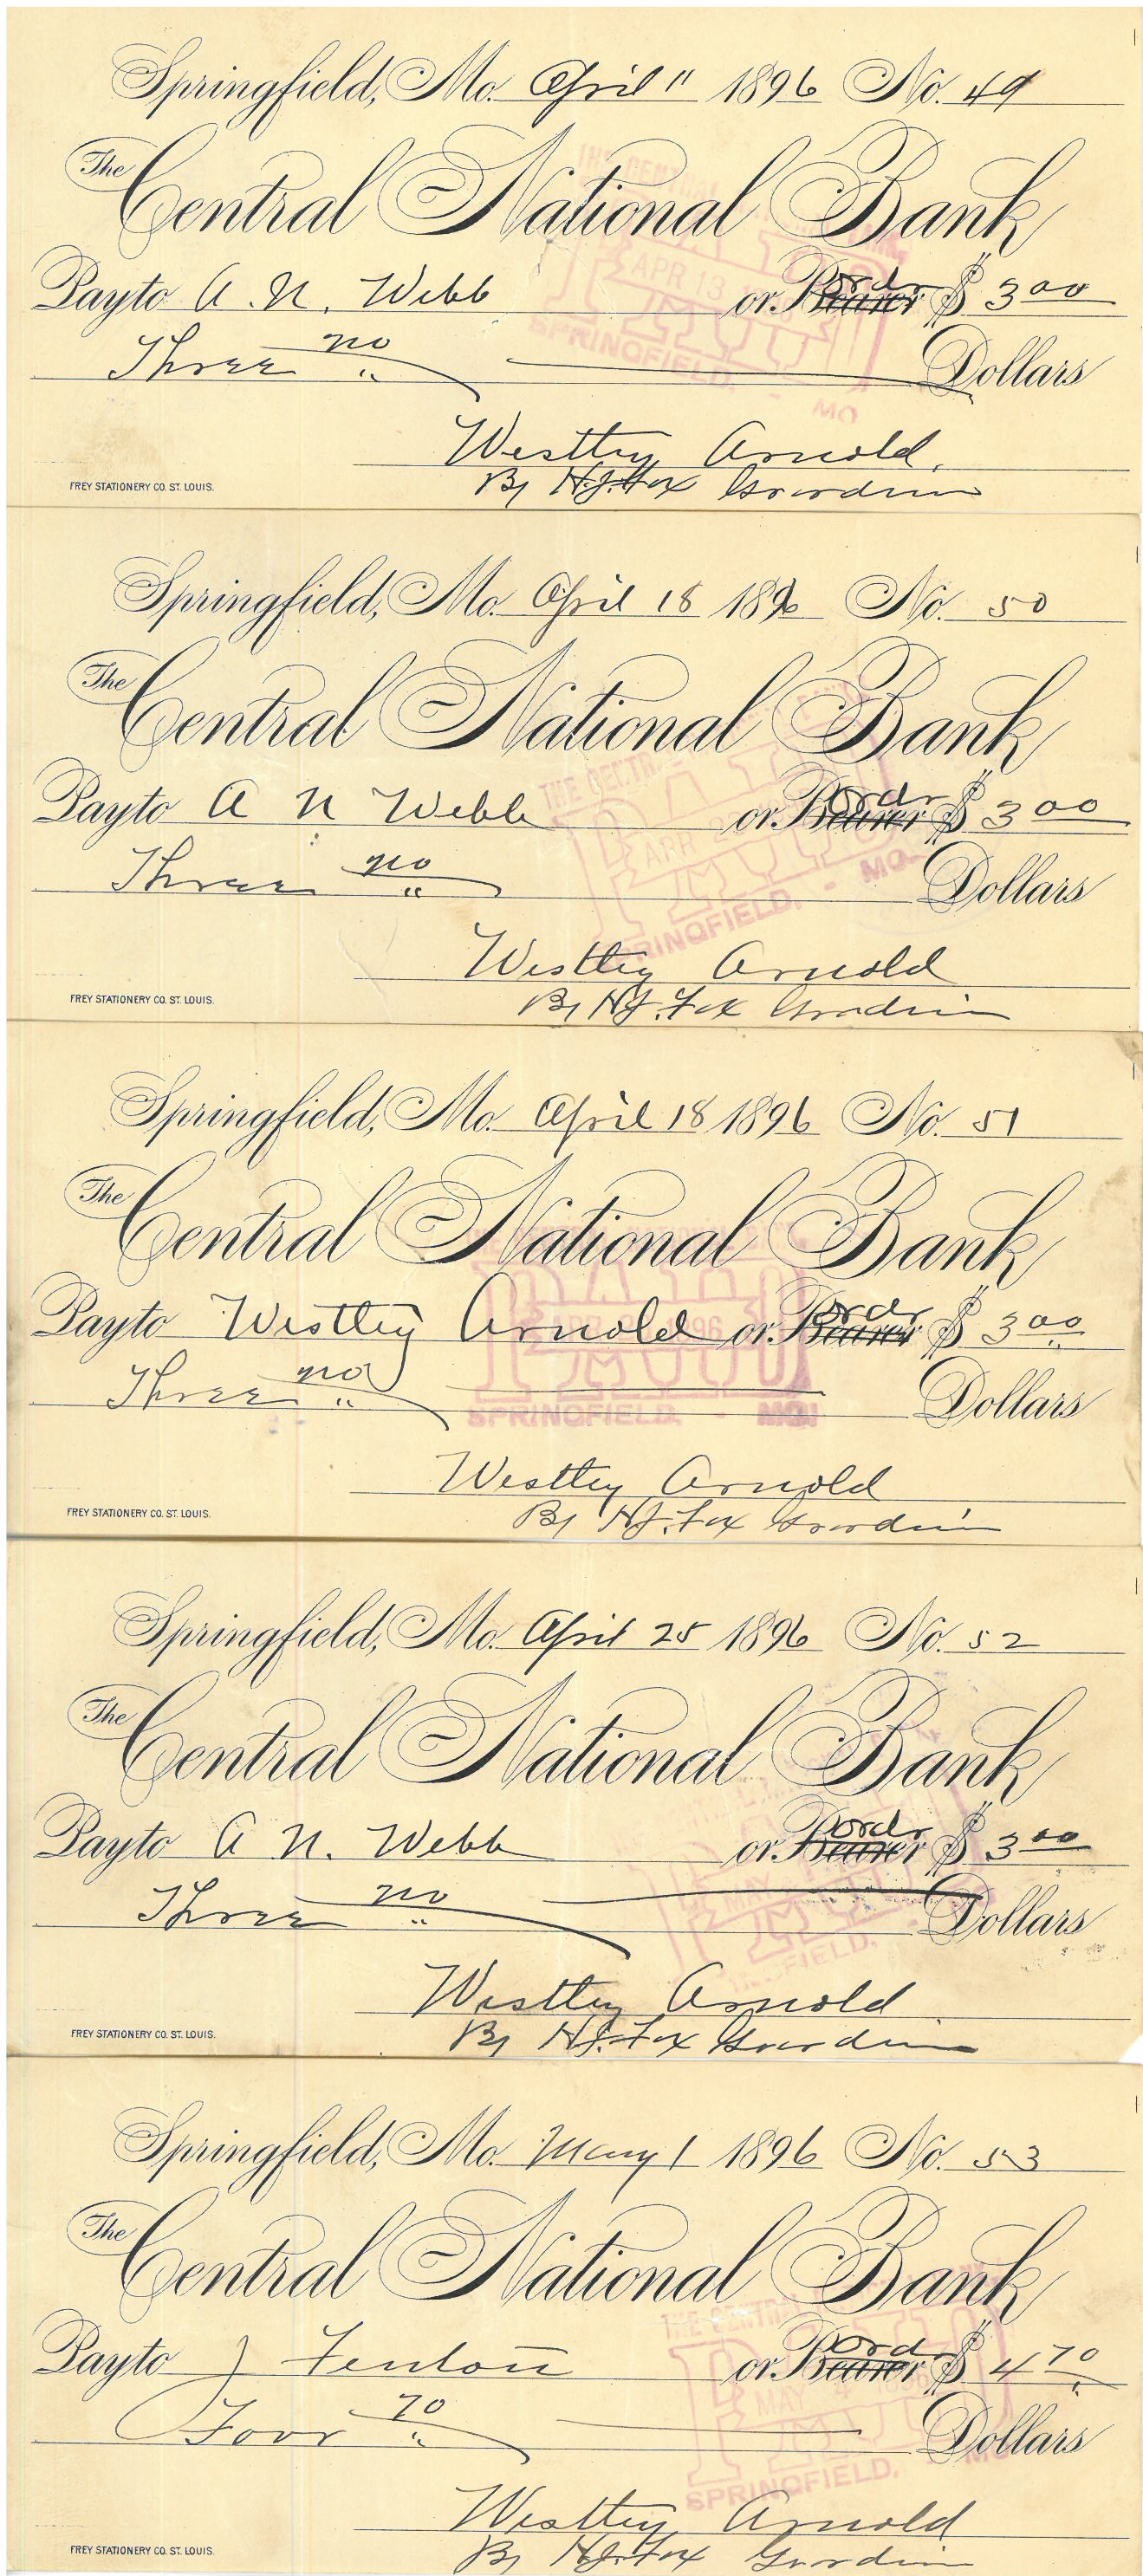 Springfield, Mo. April 11 1896 No. 49
The Central National Bank
Pay to A. N. Webb or Bearer Order $ 3 00
Three no Dollars
Westley Arnold.
By H.J. Fox Guardian
FREY STATIONERY CO. ST. LOUIS.
THE CENTRAL
PAID
APR 13
SPRINGFIELD. - MO
Springfield, Mo. April 18 1896 No. 50
The Central National Bank
Pay to A N Webb or Bearer Order $ 3 00
Three no Dollars
Westley Arnold
By H.J. Fox Guardian
FREY STATIONERY CO. ST. LOUIS.
PAID
APR
SPRINGFIELD. - MO.
Springfield, Mo. April 18 1896 No. 51
The Central National Bank
Pay to Westley Arnold or Bearer Order $ 3 00
Three no Dollars
Westley Arnold
By H.J. Fox Guardian
FREY STATIONERY CO. ST. LOUIS.
PAID
SPRINGFIELD. - MO.
Springfield, Mo. April 25 1896 No. 52
The Central National Bank
Pay to A N. Webb or Bearer Order $ 3 00
Three no Dollars
Westley Arnold
By H.J. Fox Guardian
FREY STATIONERY CO. ST. LOUIS.
Springfield, Mo. May 1 1896 No. 53
The Central National Bank
Pay to J Fenton or Bearer Ord $ 4 70
Foor 70 Dollars
Westley Arnold
By H.J. Fox Guardian
FREY STATIONERY CO. ST. LOUIS.
PAID
MAY
SPRINGFIELD.